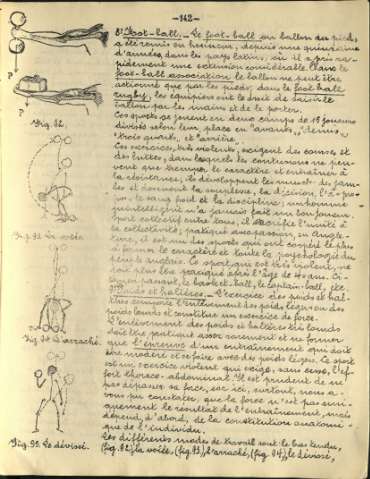 -142-
8° Foot-ball.- Le foot-ball ou ballon au pied,
a été remis en honneur, depuis une quinzaine
d'années, dans les pays latins, où il a pris ra-
pidement une extension considérable. Dans le
foot-ball association, le ballon ne peut être
actionné que par les pieds; dans le foot-ball
rugby, les équipiers ont le droit de saisir le
ballon par les mains et de le porter.
Ces sports se jouent en deux camps de 15 joueurs
divisés selon leur place en "avants", "demis",
"trois quarts", et "arrière".
Ces exercices, très violents, exigent des courses et
des luttes, dans lesquels les contusions ne peu-
vent que tremper le caractère et entraîner à
la résistance; ils développent les muscles des jam-
bes et donnent la souplesse, la décision, l'à-pro-
pos, le sang froid et la discipline; un homme
inintelligent n'a jamais fait un bon joueur.
Sport collectif entre tous, il sacrifie l'unité à
la collectivité; pratiqué avec passion, en Angle-
terre, il est un des sports qui ont coopéré le plus
à former le caractère et toute la psychologie du
peuple anglais. Ce sport qui est très violent, ne
doit plus être pratiqué après l'âge de 40 ans. Ci-
tons en passant, le basket-ball, le captain-ball, etc
Poids et haltères.- L'exercice des poids et hal-
tères comporte l'entraînement des poids légers ou des
poids lourds et constitue un exercice de force.
L'entraînement des poids et haltères très lourds
doit être pratiqué assez rarement et ne former
que l'épreuve d'un entraînement qui doit
être modéré et se faire avec des poids légers. Ce sport
est un exercice violent qui exige, sans cesse, l'ef-
fort thoraco-abdominal. Il est prudent de ne
pas dépasser sa force, car ici, surtout, nous a-
vons pu constater que la force n'est pas uni-
quement le résultat de l'entraînement, mais
dépend, d'abord, de la constitution anatomi-
que de l'individu.
Les différents modes de travail sont le bras tendu,
(fig. 92) la volée, (fig. 93) l'arraché, (fig. 94) le dévissé,
P
P
Fig. 92.
Fig. 93 La volée.
Fig. 94 L'arraché.
Fig. 95. Le dévissé.